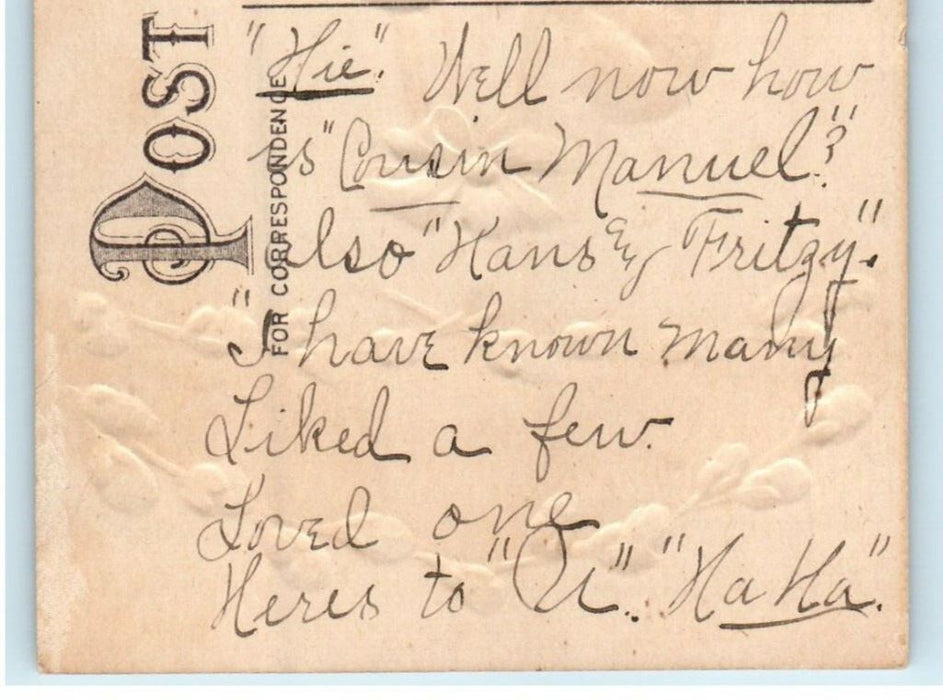 POST
FOR CORRESPONDENCE
"Hie". Well now how
is "Cousin Manuel."?
also "Hans & Fritzy".
"I have known many
Liked a few.
Loved one
Heres to "U". "Ha Ha".